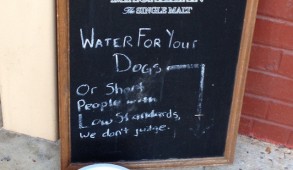 The SINGLE MALT
WATER FOR YOUR
DOGS
Or Short
People with
Low Standards,
We don't judge.